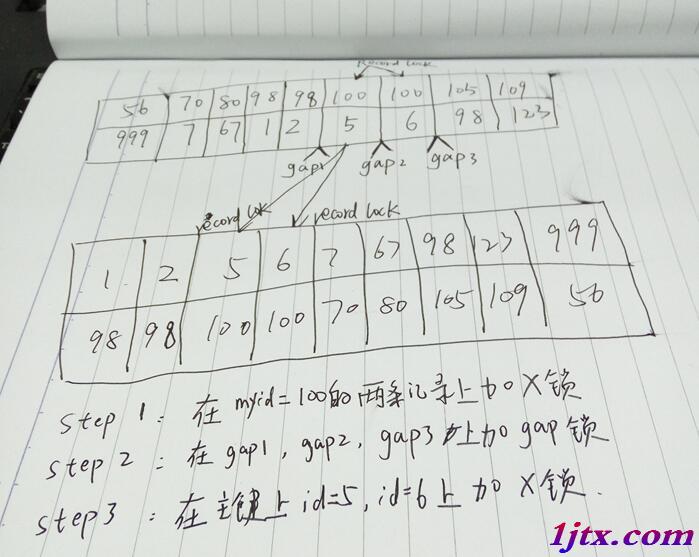 Record lock
56 70 80 98 98 100 100 105 109
999 7 67 1 2 5 6 98 123
gap1 gap2 gap3
record lock record lock
1 2 5 6 7 67 98 123 999
98 98 100 100 70 80 105 109 56
step 1: 在 myid=100的两条记录上加X锁
step 2: 在gap1, gap2, gap3上加gap锁
step3: 在主键上id=5, id=6上加X锁.
1jtx.com